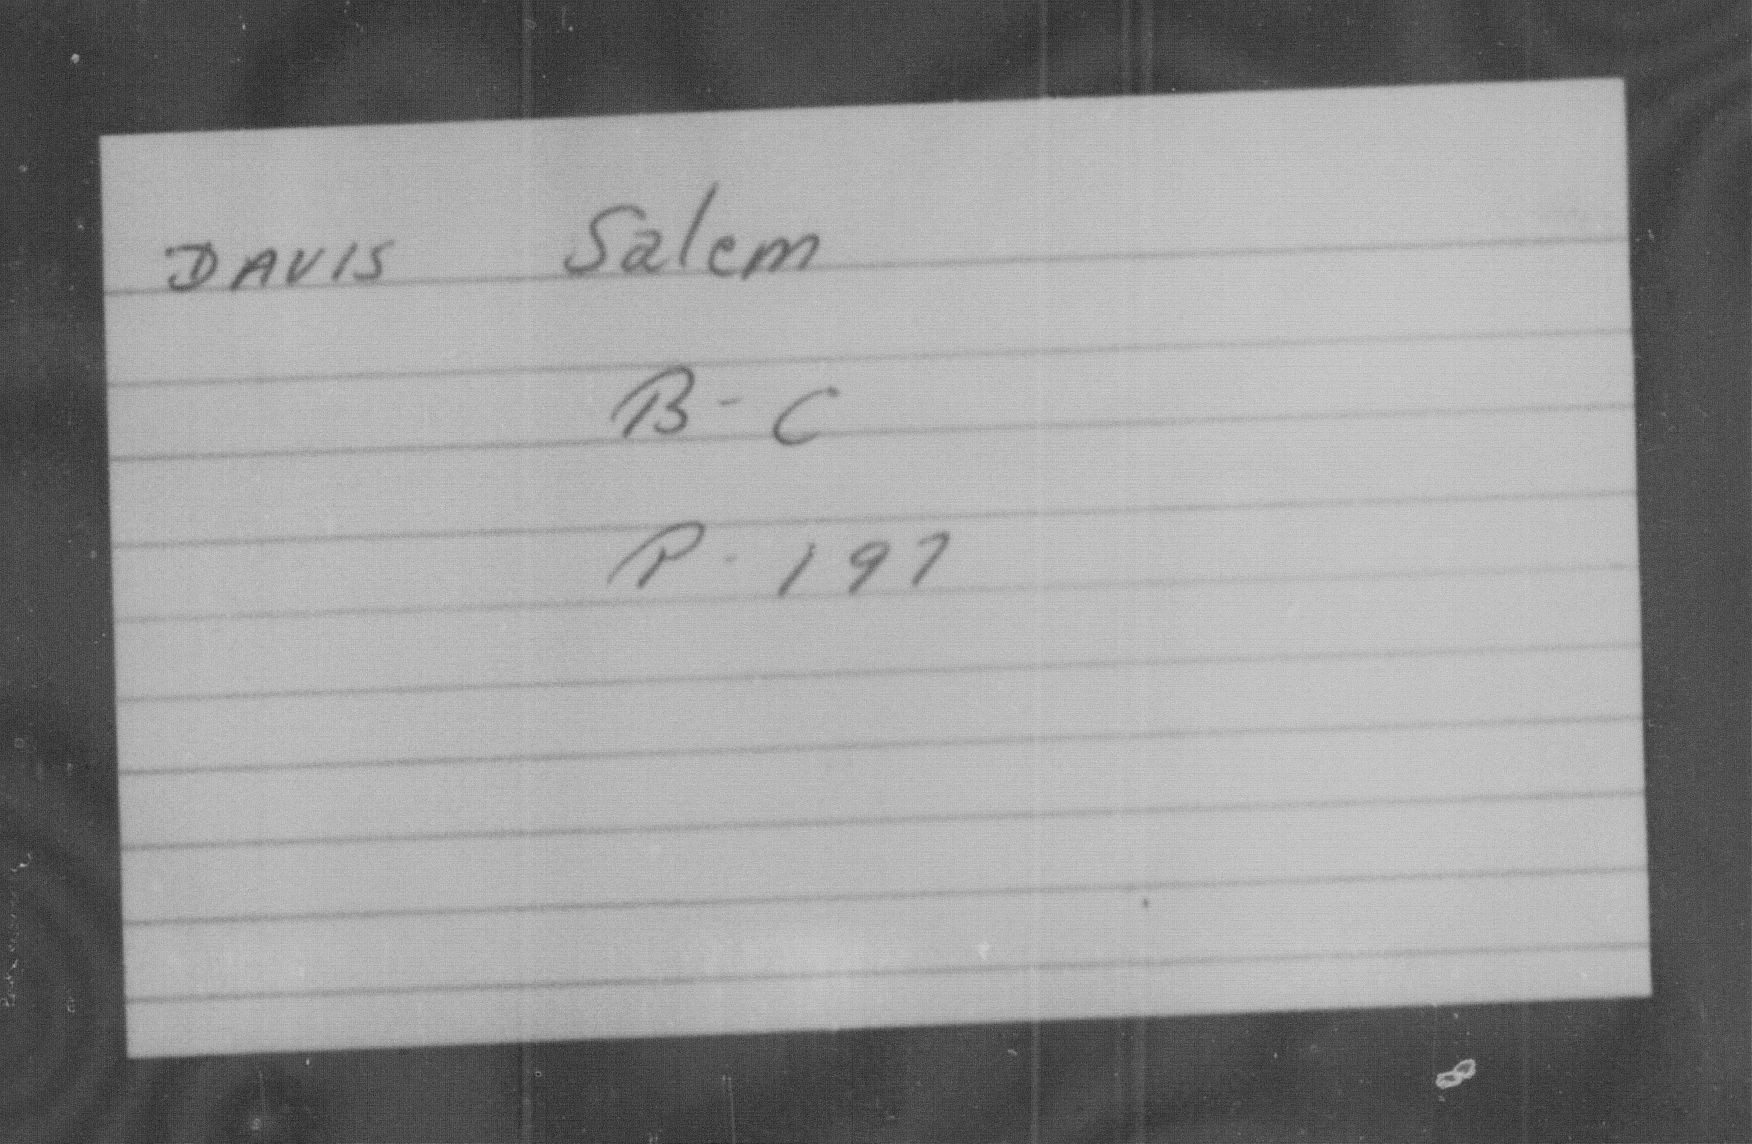 DAVIS Salem
B - C
P - 197